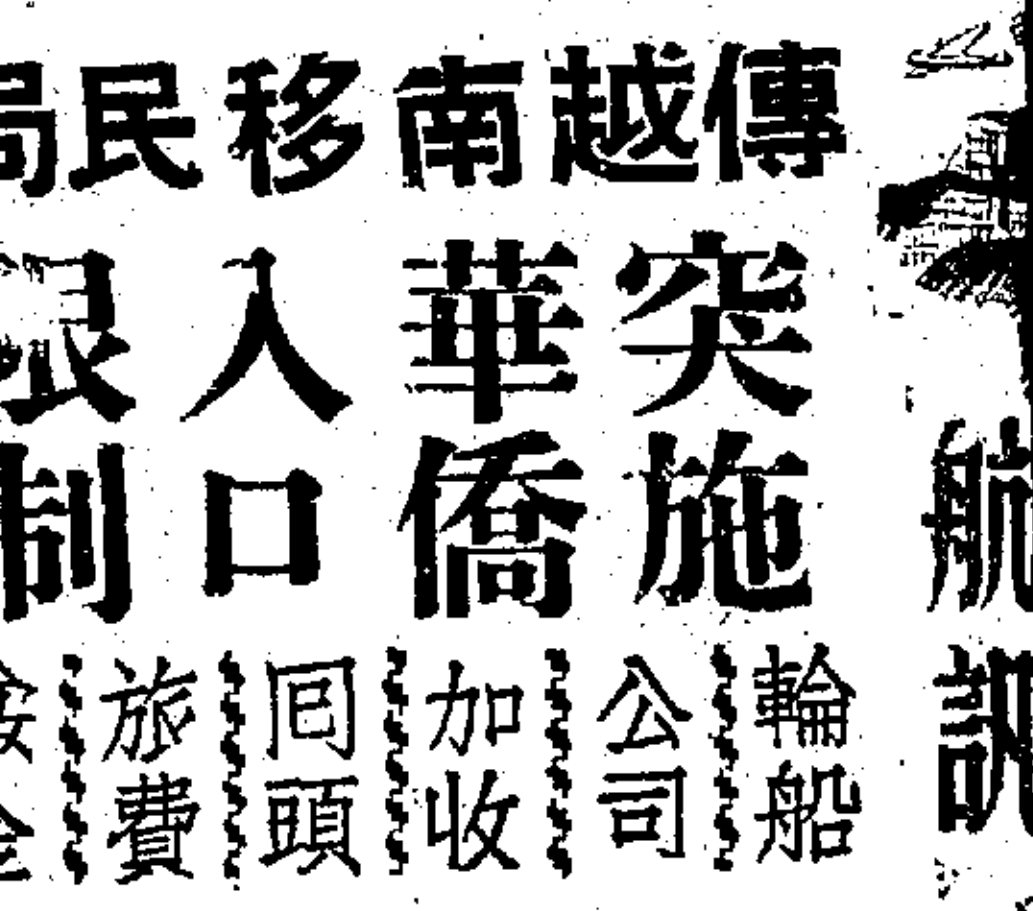 航訊
傳越南移民局
突施華僑入口限制
輪船
公司
加收
囘頭
旅費
按金